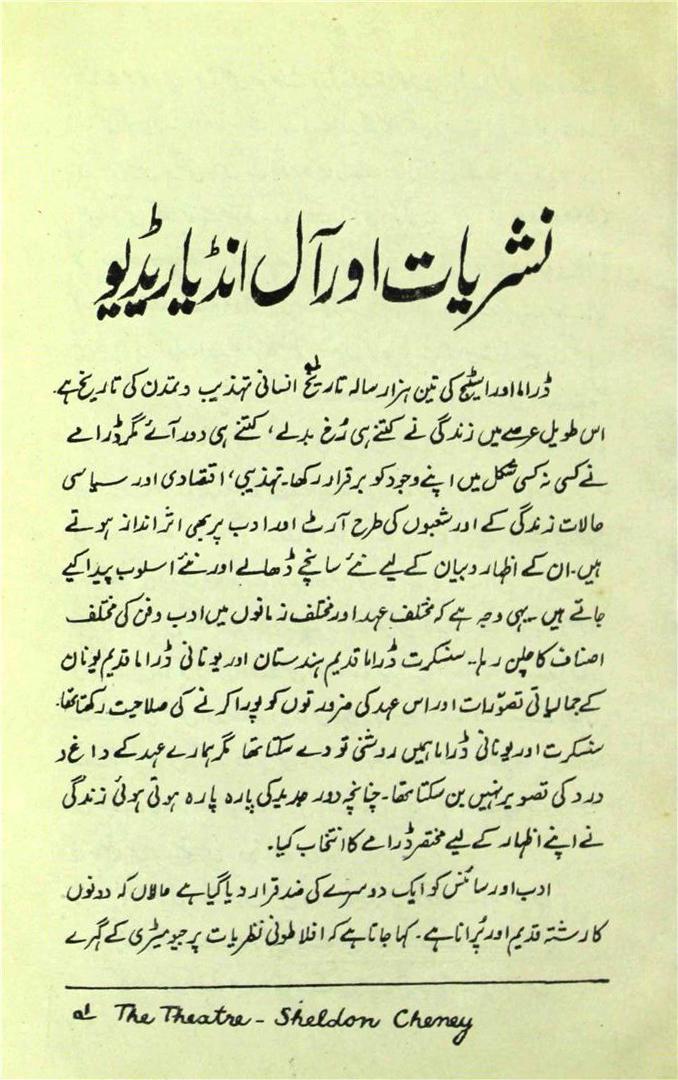 نشریات اور آل انڈیا ریڈیو
ڈراما اور اسٹیج کی تین ہزار سالہ تاریخ لہ انسانی تہذیب و تمدن کی تاریخ ہے۔
اس طویل عرصے میں زندگی نے کتنے ہی رُخ بدلے، کتنے ہی دور آئے مگر ڈرامے
نے کسی نہ کسی شکل میں اپنے وجود کو برقرار رکھا۔ تہذیبی، اقتصادی اور سیاسی
حالات زندگی کے اور شعبوں کی طرح آرٹ اور ادب پر بھی اثر انداز ہوتے
ہیں۔ ان کے اظہار و بیان کے لیے نئے سانچے ڈھالے اور نئے اسلوب پیدا کیے
جاتے ہیں۔ یہی وجہ ہے کہ مختلف عہد اور مختلف زمانوں میں ادب و فن کی مختلف
اصناف کا چلن رہا۔ سنسکرت ڈراما قدیم ہندستان اور یونانی ڈراما قدیم یونان
کے جمالیاتی تصوّرات اور اس عہد کی ضرورتوں کو پورا کرنے کی صلاحیت رکھتا تھا۔
سنسکرت اور یونانی ڈراما ہمیں روشنی تو دے سکتا تھا مگر ہمارے عہد کے داغ و
درد کی تصویر نہیں بن سکتا تھا۔ چنانچہ دور جدید کی پارہ پارہ ہوتی ہوئی زندگی
نے اپنے اظہار کے لیے مختصر ڈرامے کا انتخاب کیا۔
ادب اور سائنس کو ایک دوسرے کی ضد قرار دیا گیا ہے حالاں کہ دونوں
کا رشتہ قدیم اور پُرانا ہے۔ کہا جاتا ہے کہ افلاطونی نظریات پر جیومیٹری کے گہرے
لہ The Theatre - Sheldon Cheney